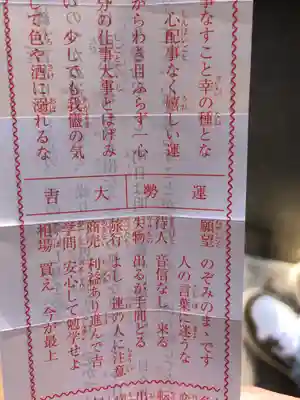 事なすこと幸の種とな
心配事なく嬉しい運
からわき目ふらず一心
分の仕事大事とはげみ
い少しでも我儘の気
して色や酒に溺れるな
運勢 大吉
願望 のぞみのまゝです
人の言葉に迷うな
待人 音信なし 来る
失物 出るが手間どる
旅行 よし 連の人に注意
商売 利益あり進んで吉
学問 安心して勉学せよ
相場 買え 今が最上